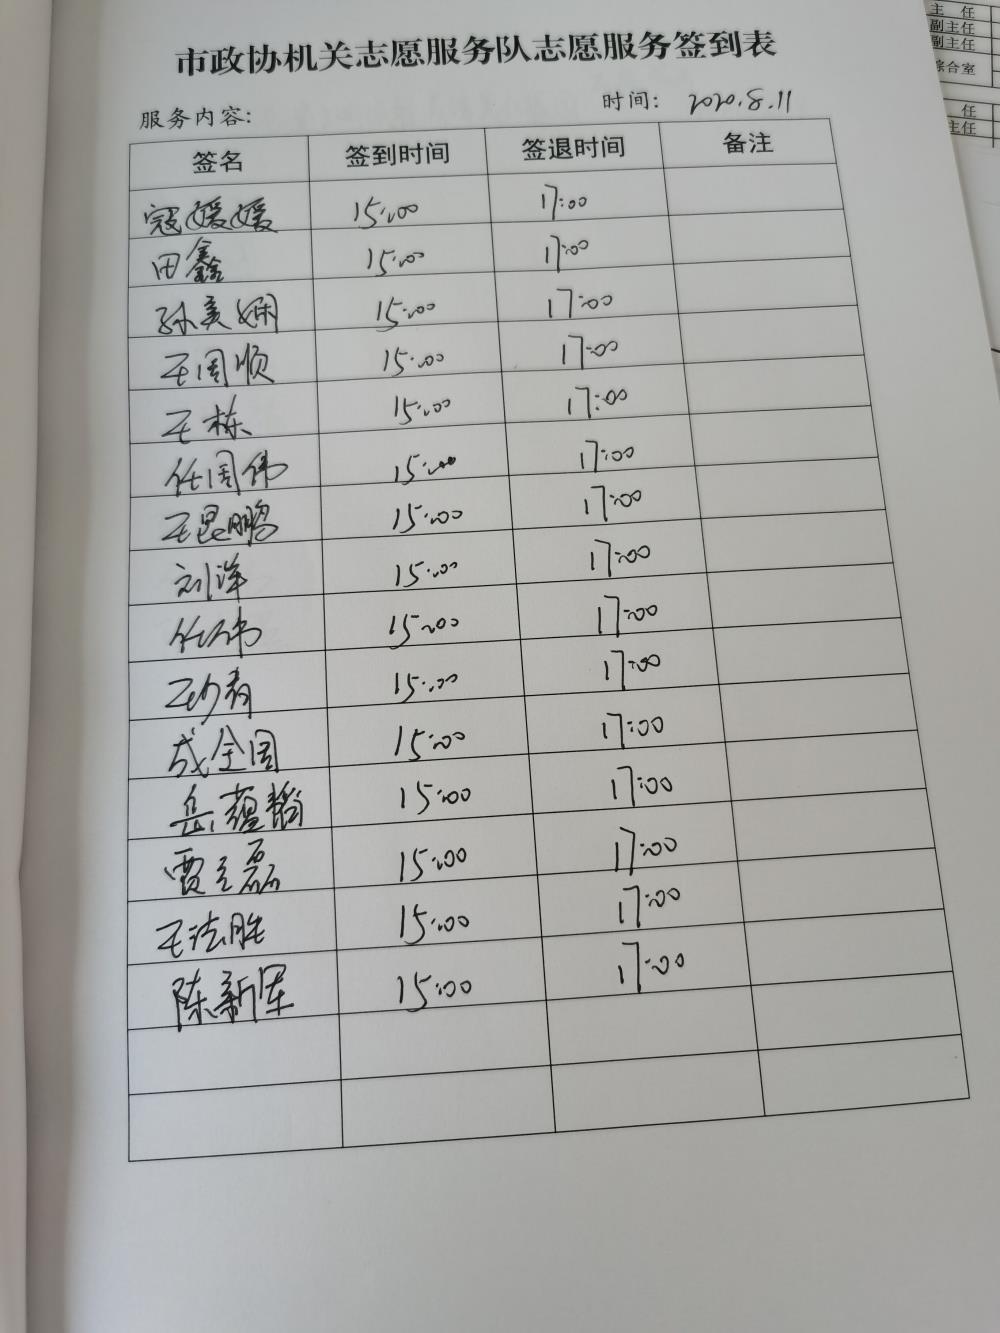 市政协机关志愿服务队志愿服务签到表
服务内容: 时间: 2020.8.11
签名 签到时间 签退时间 备注
寇媛媛 15:00 17:00
田鑫 15:00 17:00
孙美娴 15:00 17:00
王周顺 15:00 17:00
王栋 15:00 17:00
任周伟 15:00 17:00
王昆鹏 15:00 17:00
刘洋 15:00 17:00
任伟 15:00 17:00
15:00 17:00
成全国 15:00 17:00
岳蕴韬 15:00 17:00
贾立磊 15:00 17:00
王法胜 15:00 17:00
陈新军 15:00 17:00
主 任
副主任
副主任
综合室
任
主任